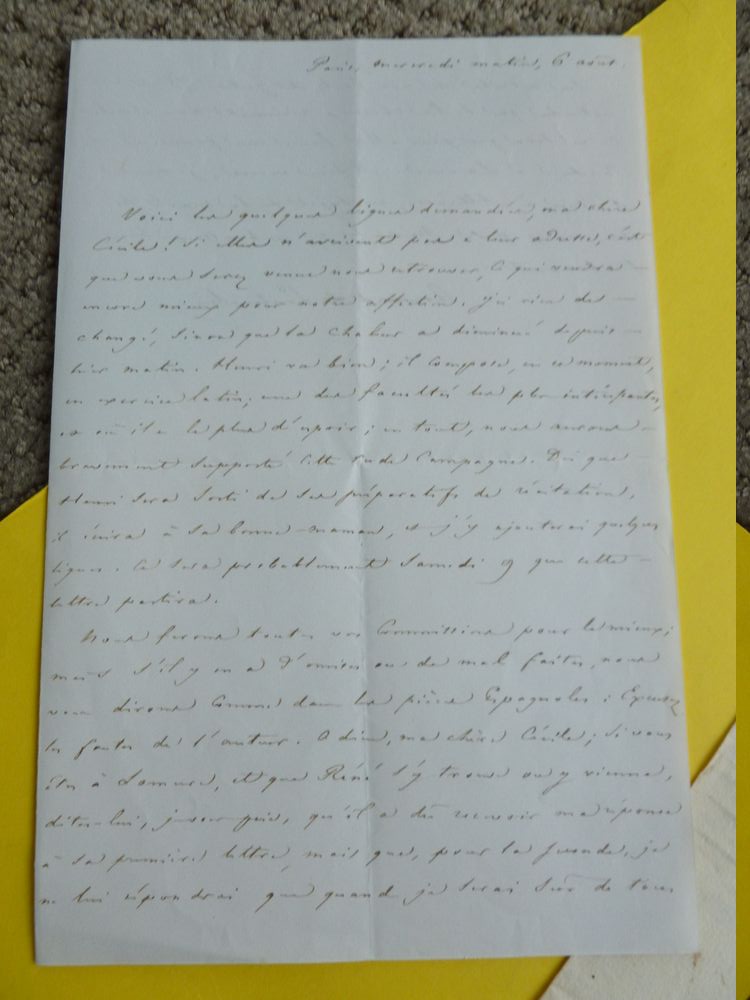 Paris, mercredi matin, 6 août.
Voici les quelques lignes demandées, ma chère
Cécile ! Si elles n'arrivent pas à leur adresse, c'est
que vous serez venue nous retrouver, ce qui vaudra
encore mieux pour notre affection. J'ai rien de
changé, sinon que la chaleur a diminué depuis
hier matin. Henri va bien ; il compose, en ce moment,
en exercice latin, une des facultés les plus intéressantes,
et où il a le plus d'espoir ; en tout, nous aurons
bravement supporté cette rude campagne. Dès que
Henri sera sorti de ses préparatifs de récitation,
il écrira à sa bonne-maman, et j'y ajouterai quelques
lignes. Ce sera probablement samedi 9 que cette
lettre partira.
Nous ferons toutes vos commissions pour le mieux ;
mais s'il y en a d'omises ou de mal faites, nous
vous dirons comme dans les pièces Espagnoles : Excusez
les fautes de l'auteur. Adieu, ma chère Cécile ; si vous
êtes à Saumur, et que René s'y trouve ou y vienne,
dites-lui, je vous prie, qu'il a dû recevoir ma réponse
à sa première lettre, mais que, pour la seconde, je
ne lui répondrai que quand je serai sûr de tous